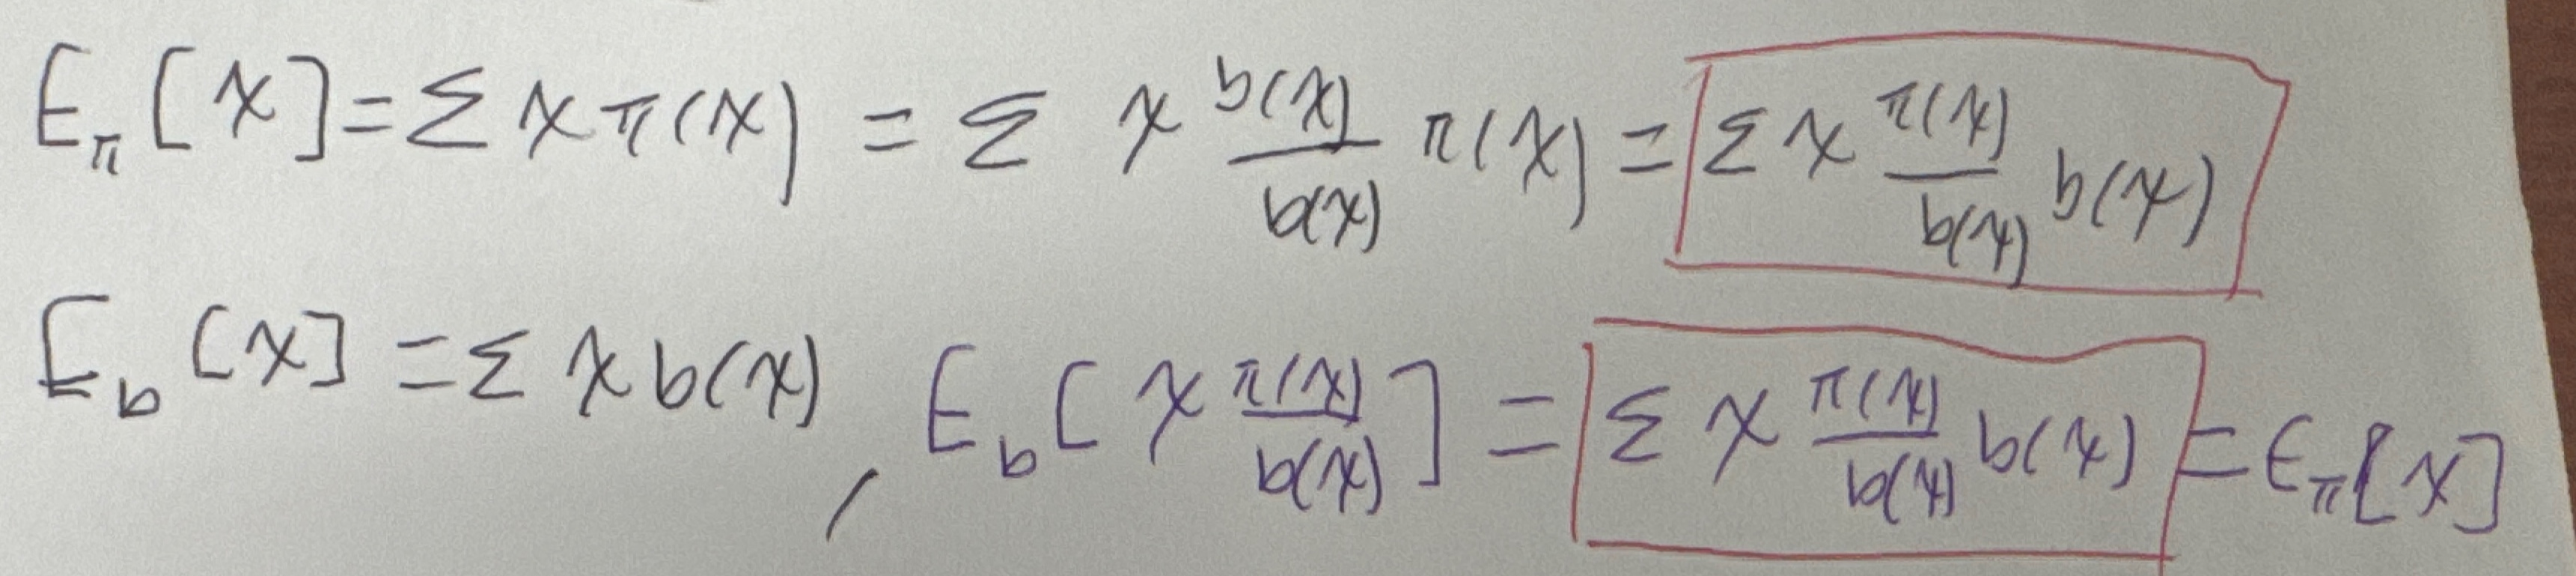 E_π[x] = Σ x π(x) = Σ x b(x)/b(x) π(x) = Σ x π(x)/b(x) b(x)
E_b[x] = Σ x b(x), E_b[x π(x)/b(x)] = Σ x π(x)/b(x) b(x) = E_π[x]